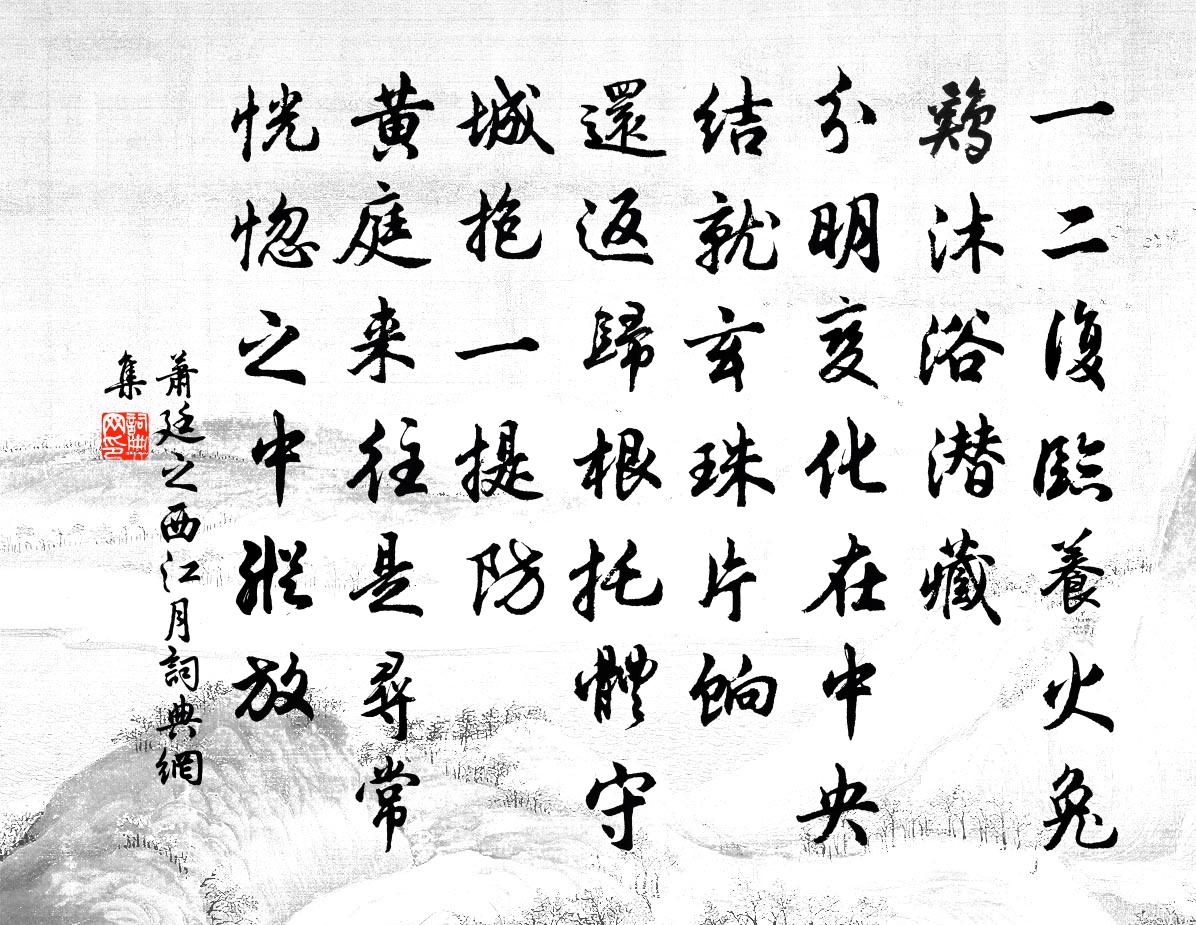 一二復臨養火兔
鷄沐浴潜藏
分明変化在中央
結就玄珠片餉
還返歸根托體守
城抱一提防
黄庭来往是尋常
恍惚之中縱放
蕭廷之西江月詞典網
集
詞典
网印